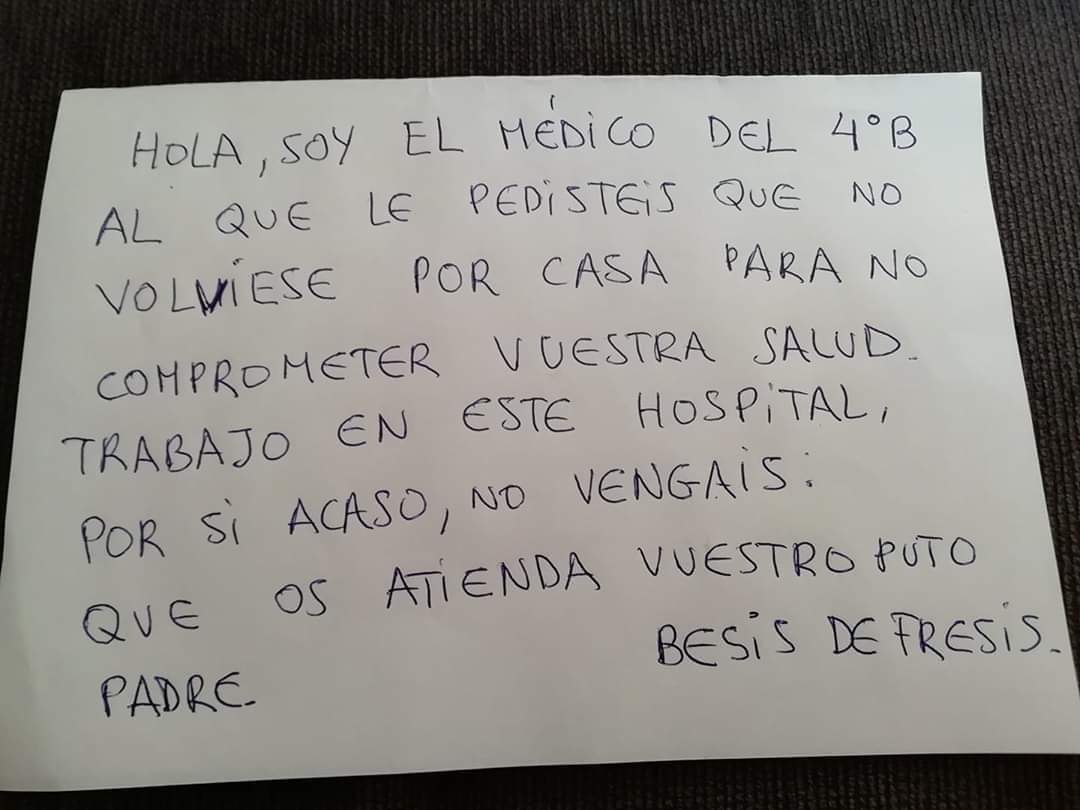 HOLA, SOY EL MÉDICO DEL 4°B
AL QUE LE PEDISTEIS QUE NO
VOLVIESE POR CASA PARA NO
COMPROMETER VUESTRA SALUD.
TRABAJO EN ESTE HOSPITAL,
POR SI ACASO, NO VENGAIS:
QUE OS ATIENDA VUESTRO PUTO
PADRE.
BESIS DE FRESIS.